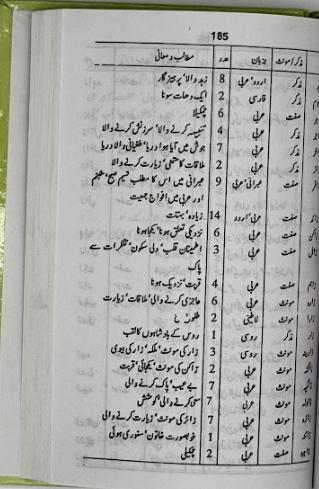 185
مذکر/مونث زبان عدد مطالب و معانی
مذکر اردو' عربی 8 زہد والا' پرہیزگار
مذکر فارسی 2 ایک دھات سونا
صفت عربی 6 چمکیلا
مذکر عربی 4 تنبیہہ کرنے والا' سرزنش کرنے والا
مذکر عربی 7 جوش میں آیا ہوا دریا' طغیانی والا دریا
مذکر عربی 2 ملاقات کا متمنی' زیارت کرنے والا
صفت عبرانی' عربی 9 عبرانی میں اس کا مطلب نسیم صبح' شبنم
اور عربی میں افواج جمعیت
صفت عربی' اردو 14 زیادہ' بہتات
صفت عربی 6 نزدیکی تعلق ہونا' یکجا ہونا
صفت عربی 3 اطمینان قلب' دلی سکون' تفکرات سے
پاک
صفت عربی 4 قربت' نزدیک ہونا
مونث عربی 6 عاجزی کرنے والی' ملاقات' زیارت
مونث 2
مذکر روسی 1 روس کے بادشاہوں کا لقب
مونث روسی 3 زار کی مونث' ملکہ' زار کی بیوی
مونث عربی 2 زاکن کی مونث' یکجائی' قربت
مونث عربی 7 بے عیب' پاک کرنے والی
مونث عربی 7 کوشش
مونث عربی 7 زائر کی مونث' زیارت کرنے والی
مونث عربی 1 خوبصورت خاتون' سنوری ہوئی
صفت عربی 2 چمکیلی